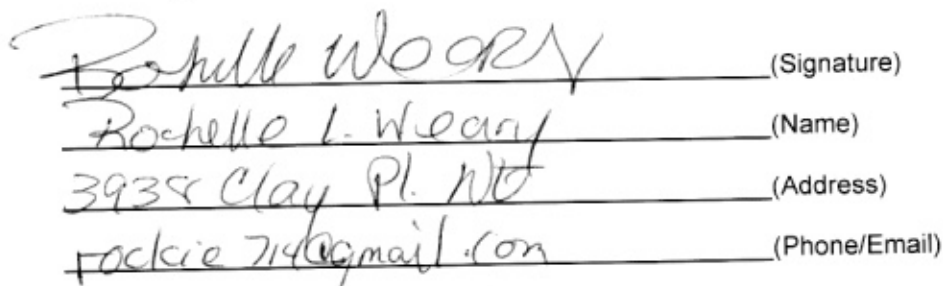 Rochelle Weary (Signature)
Rochelle L. Weary (Name)
3938 Clay Pl. NE (Address)
rockie714@gmail.com (Phone/Email)